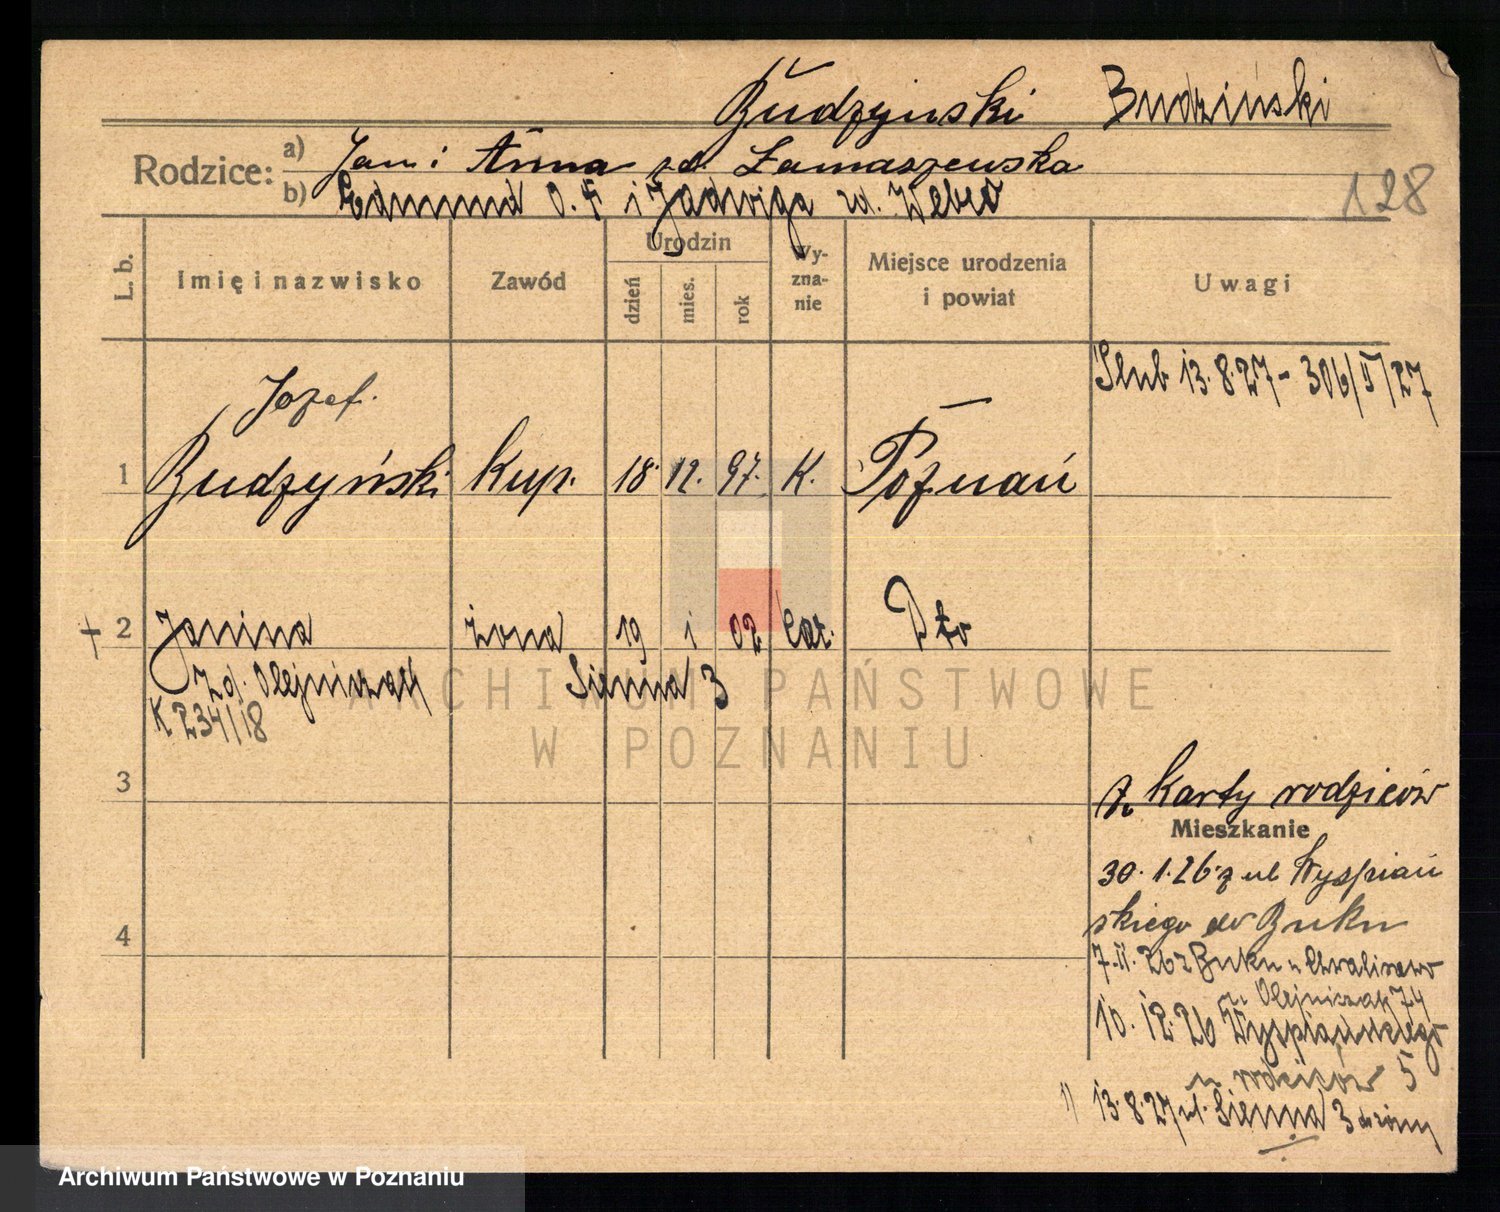 Budzyński Budziński
Rodzice: a) Jan i Anna zd. Łamaszewska
b) Edmund O. F i Jadwiga zd. Weber
128
L. b.
Imię i nazwisko
Zawód
Urodzin
dzień
mies.
rok
Wy-
zna-
nie
Miejsce urodzenia
i powiat
Uwagi
Ślub 13.8.27 - 306/II/27
Józef.
1 Budzyński Kup. 18. 12. 97. K. Poznań
+ 2 Janina żona 19 i 02 kat. Dto
zd. Olejniczak Sienna 3
K 234/18
3
z karty rodziców
Mieszkanie
30.1.26 z ul Wyspiań
skiego do Buku
4
7.II.26 z Buku n Chwaliszewo
u Olejniczak 74
10.12.26 Wyspiańskiego
u rodziców 5
1) 13.8.27 ul. Sienna 3 do żony
ARCHIWUM PAŃSTWOWE
W POZNANIU
Archiwum Państwowe w Poznaniu